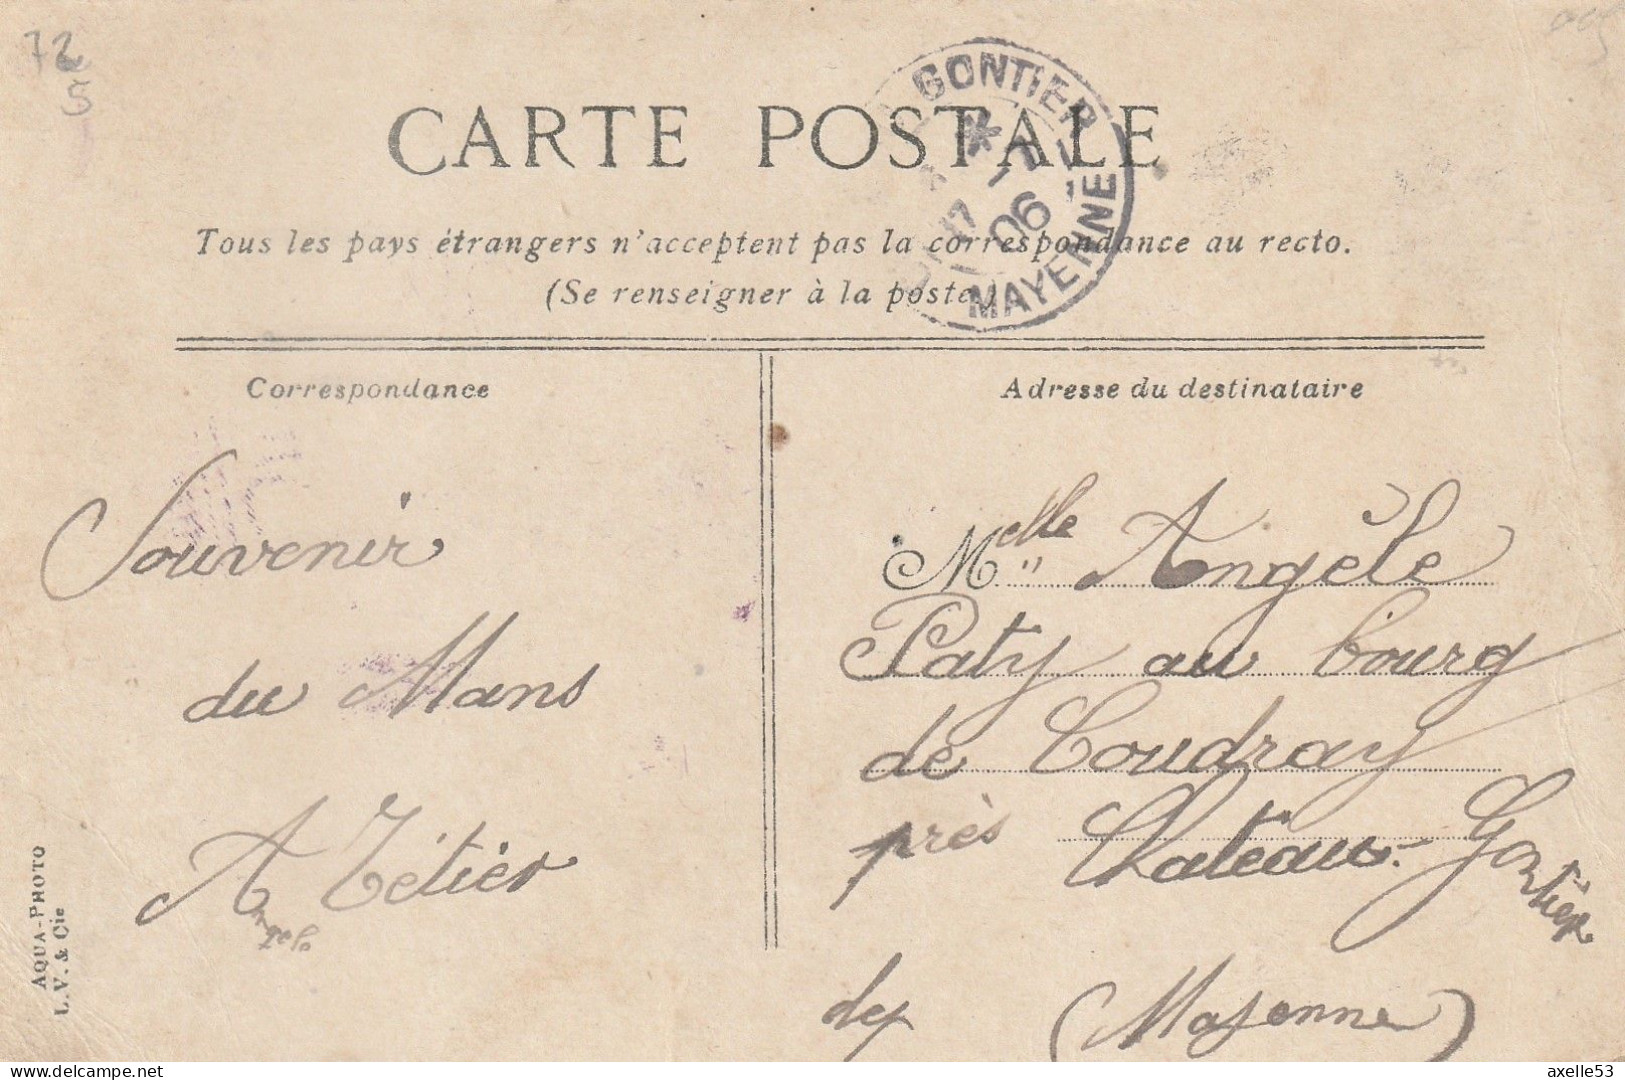 72
5
CARTE POSTALE
GONTIER
* 
17
-7
06
MAYENNE
Tous les pays étrangers n'acceptent pas la correspondance au recto.
(Se renseigner à la poste.)
Correspondance
Souvenir
du Mans
A Tétier
AQUA-PHOTO
L.V. & Cie
Adresse du destinataire
Melle Angèle
Paty au bourg
de Coudray
près Chateau-Gontier
(Mayenne)
axelle53